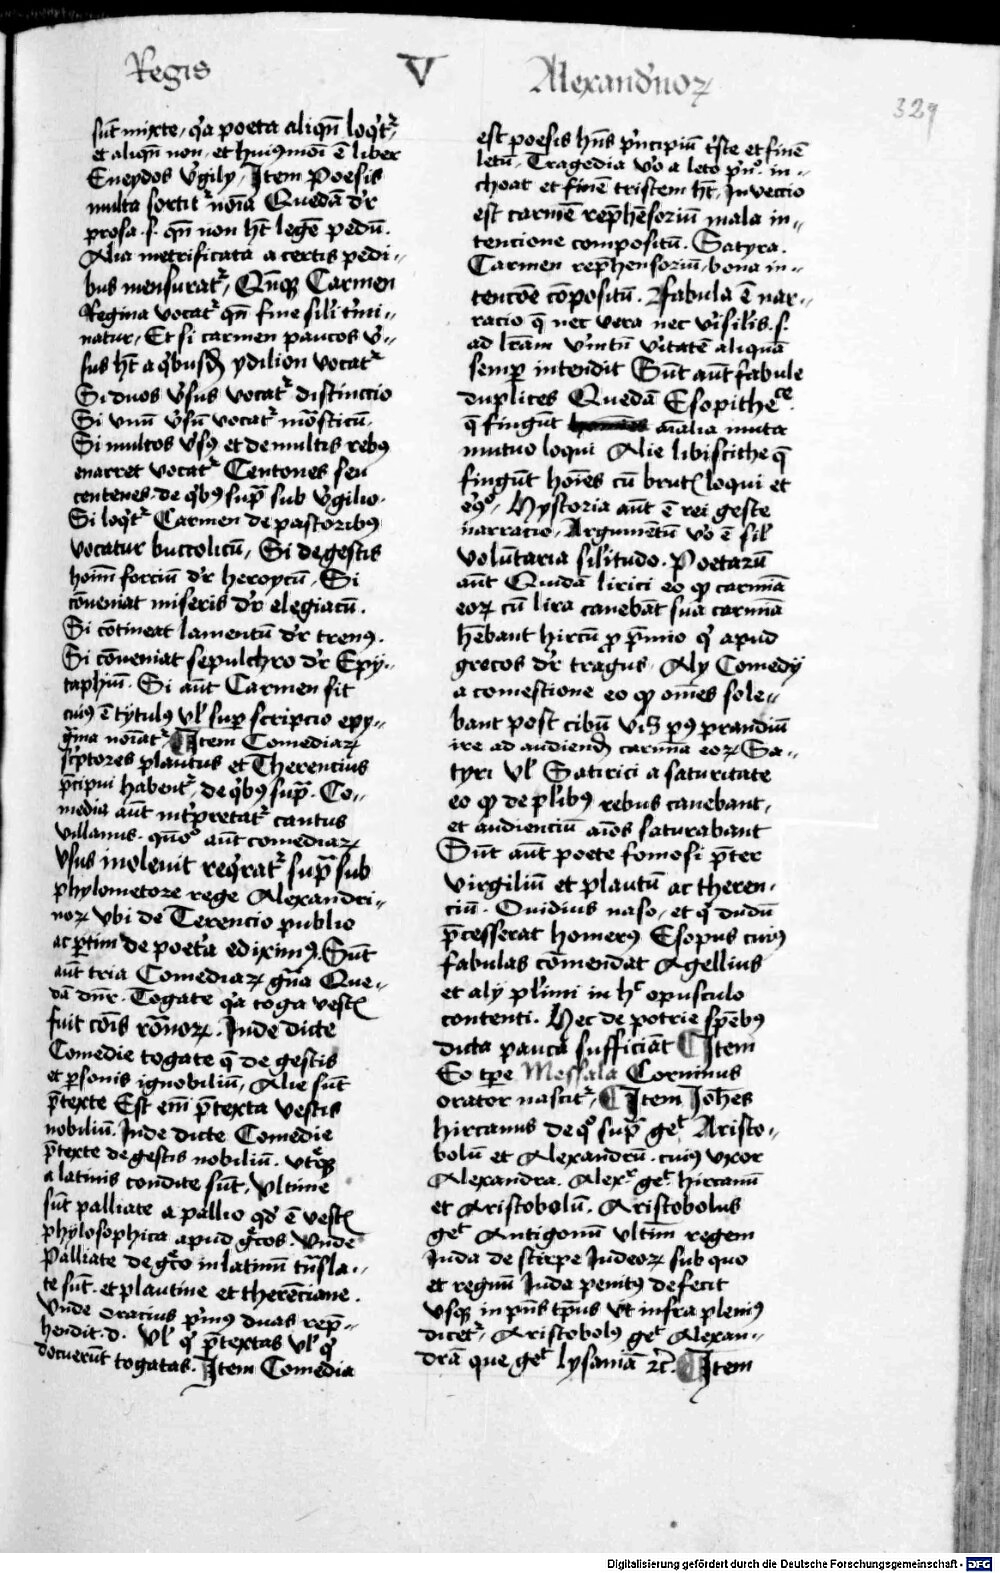 Regis V Alexandrinoꝝ
329
sūt mixte, qͥa poeta aliqn̄ loqͥtᷣ,
et aliqn̄ non, et huiꝰmōi ē liber
Eneydos v̓gily, Item Poesis
multa sortitᷣ noīa Quedā dr̄
prosa .s. qn̄ non hꝫ legē pedū.
Alia metrificata a certis pedi-
bus mensuratᷣ, Qn̄qꝫ Carmen
Regina vocatᷣ qn̄ fine sil̓i t̓mi-
natur, Et si carmen paucos v̓-
sus hꝫ a qͥbusdꝫ ydilion vocatᷣ
Si duos v̓sus vocatᷣ distinccio
Si vnū v̓sū vocatᷣ mōsticū.
Si multos v̓sꝰ et de multis rebꝰ
enarret vocatᷣ Centones seu
centenes. de qͥbꝰ supͣ sub v̓gilio.
Si loqͥtᷣ Carmen de pastoribꝰ
vocatur buccolicū, Si de gestis
hoīm forciū dr̄ heroycū, Si
cōueniat miseris dr̄ elegiacū.
Si cōtineat lamentū dr̄ trenꝰ.
Si cōueniat sepulchro dr̄ Epy-
taphiū. Si aūt Carmen sit
cuiꝰ ē tytulꝰ vl̓ sup scripcio epy-
gͣma noīatᷣ, Item Comediaꝝ
sc̓ptores plautus et Therencius
p̄cipui habentᷣ, de qͥbꝰ supͣ. Co-
media aūt int̓pretatᷣ cantus
villanus. quōº aūt comediaꝝ
vsus inoleuit reqͥratᷣ supͣ sub
phylometore rege Alexandri-
noꝝ vbi de Terencio publio
ac ꝑtim de poetͥa ediximꝰ. Sūt
aūt tria Comediaꝝ gn̄a Que-
dā dn̄r. Togate qͥa toga vestꝭ
fuit cōis rōnoꝝ. Inde dicte
Comedie togate q̄ de gestis
et ꝑsonis ignobiliū, Alie sūt
p̄texte Est em̄ p̄texta vestis
nobiliū. Inde dicte Comedie
p̄texte de gestis nobiliū. vtͣqꝫ
a latinis condite sūt, Vltime
sūt palliate a pallio qd̓ ē vestꝭ
phylosophica apud gͤcos. Vnde
Palliate de gͤco in latinū tn̄sla-
te sūt. et plautine et therēciane.
Vnde oracius pͥmꝰ duas rep̄-
hendit .d. Vl̓ qͥ p̄textas vl̓ qͥ
docuerūt togatas. Item Comedia
est poesis hn̄s pͥncipiū tͥste et finē
letū. Tragedia v̓o a leto pͥnº. in-
choat et finē tristem hꝫ. Inueccio
est carmē rep̄hēsoriū mala in-
tencione compositū. Satyra.
Carmen rep̄hensoriū, bona in-
tencōe cōpositū. Fabula ē nar-
racio q̄ nec vera nec v̓isil̓is .s.
ad lr̄am v̓mtn̄ v̓itatē aliquā
semꝑ intendit Sūt aūt fabule
duplices Quedā Esopithece.
q̄ fingūt aīalia muta
mutuo loqui Alie libiscithe q̄
fingūt hoīes cū brutꝭ loqui et
eꝯº, Hystoria aūt ē rei geste
narracio, Argumētū v̓o ē sil̓
volūtaria sil̓itudo. Poetarū
aūt Quidā lirici eo ꝙ carmīa
eoꝝ cū lira canebāt sua carmīa
hēbant hircū ꝓ p̄mio qͥ apud
grecos dr̄ tragus. Aly Comedy
a comestione eo ꝙ om̄es sole-
bant post cibū vidꝫ pꝰ prandiū
ire ad audiendꝫ carmīa eoꝝ Sa-
tyri vl̓ Satirici a saturitate
eo ꝙ de pl̓ibꝰ rebus canebant,
et audienciū aīos saturabant
Sūt aūt poete fomosi p̄ter
virgiliū et plautū ac theren-
ciū. Ouidius naso, et qͥ dudū
p̄cesserat homerꝰ Esopus cuiꝰ
fabulas cōmendat Agellius
et aly pl̓imi in hͦ opusculo
contenti. Hec de potrie spēbꝰ
dicta pauca sufficiāt Item
Eo tpe Messala Corninus
orator nascitᷣ, Item Johēs
hircanus de qͦ supͣ geᵗ Aristo-
bolū et Alexandrū. cuiꝰ vxor
Alexandra. Alexᷣ. geᵗ hircanū
et Aristobolū. Aristobolus
geᵗ Antigonū vltim̄ regem
Iuda de stirpe Iudeoꝝ sub quo
et regnū Iuda penitꝰ defecit
vsqꝫ in pn̄s tp̄us vt infra pleniꝰ
dicetᷣ, Aristobolꝰ geᵗ Alexan-
drā que geᵗ lysaniā ꝛc̄. Item
Digitalisierung gefördert durch die Deutsche Forschungsgemeinschaft - DFG